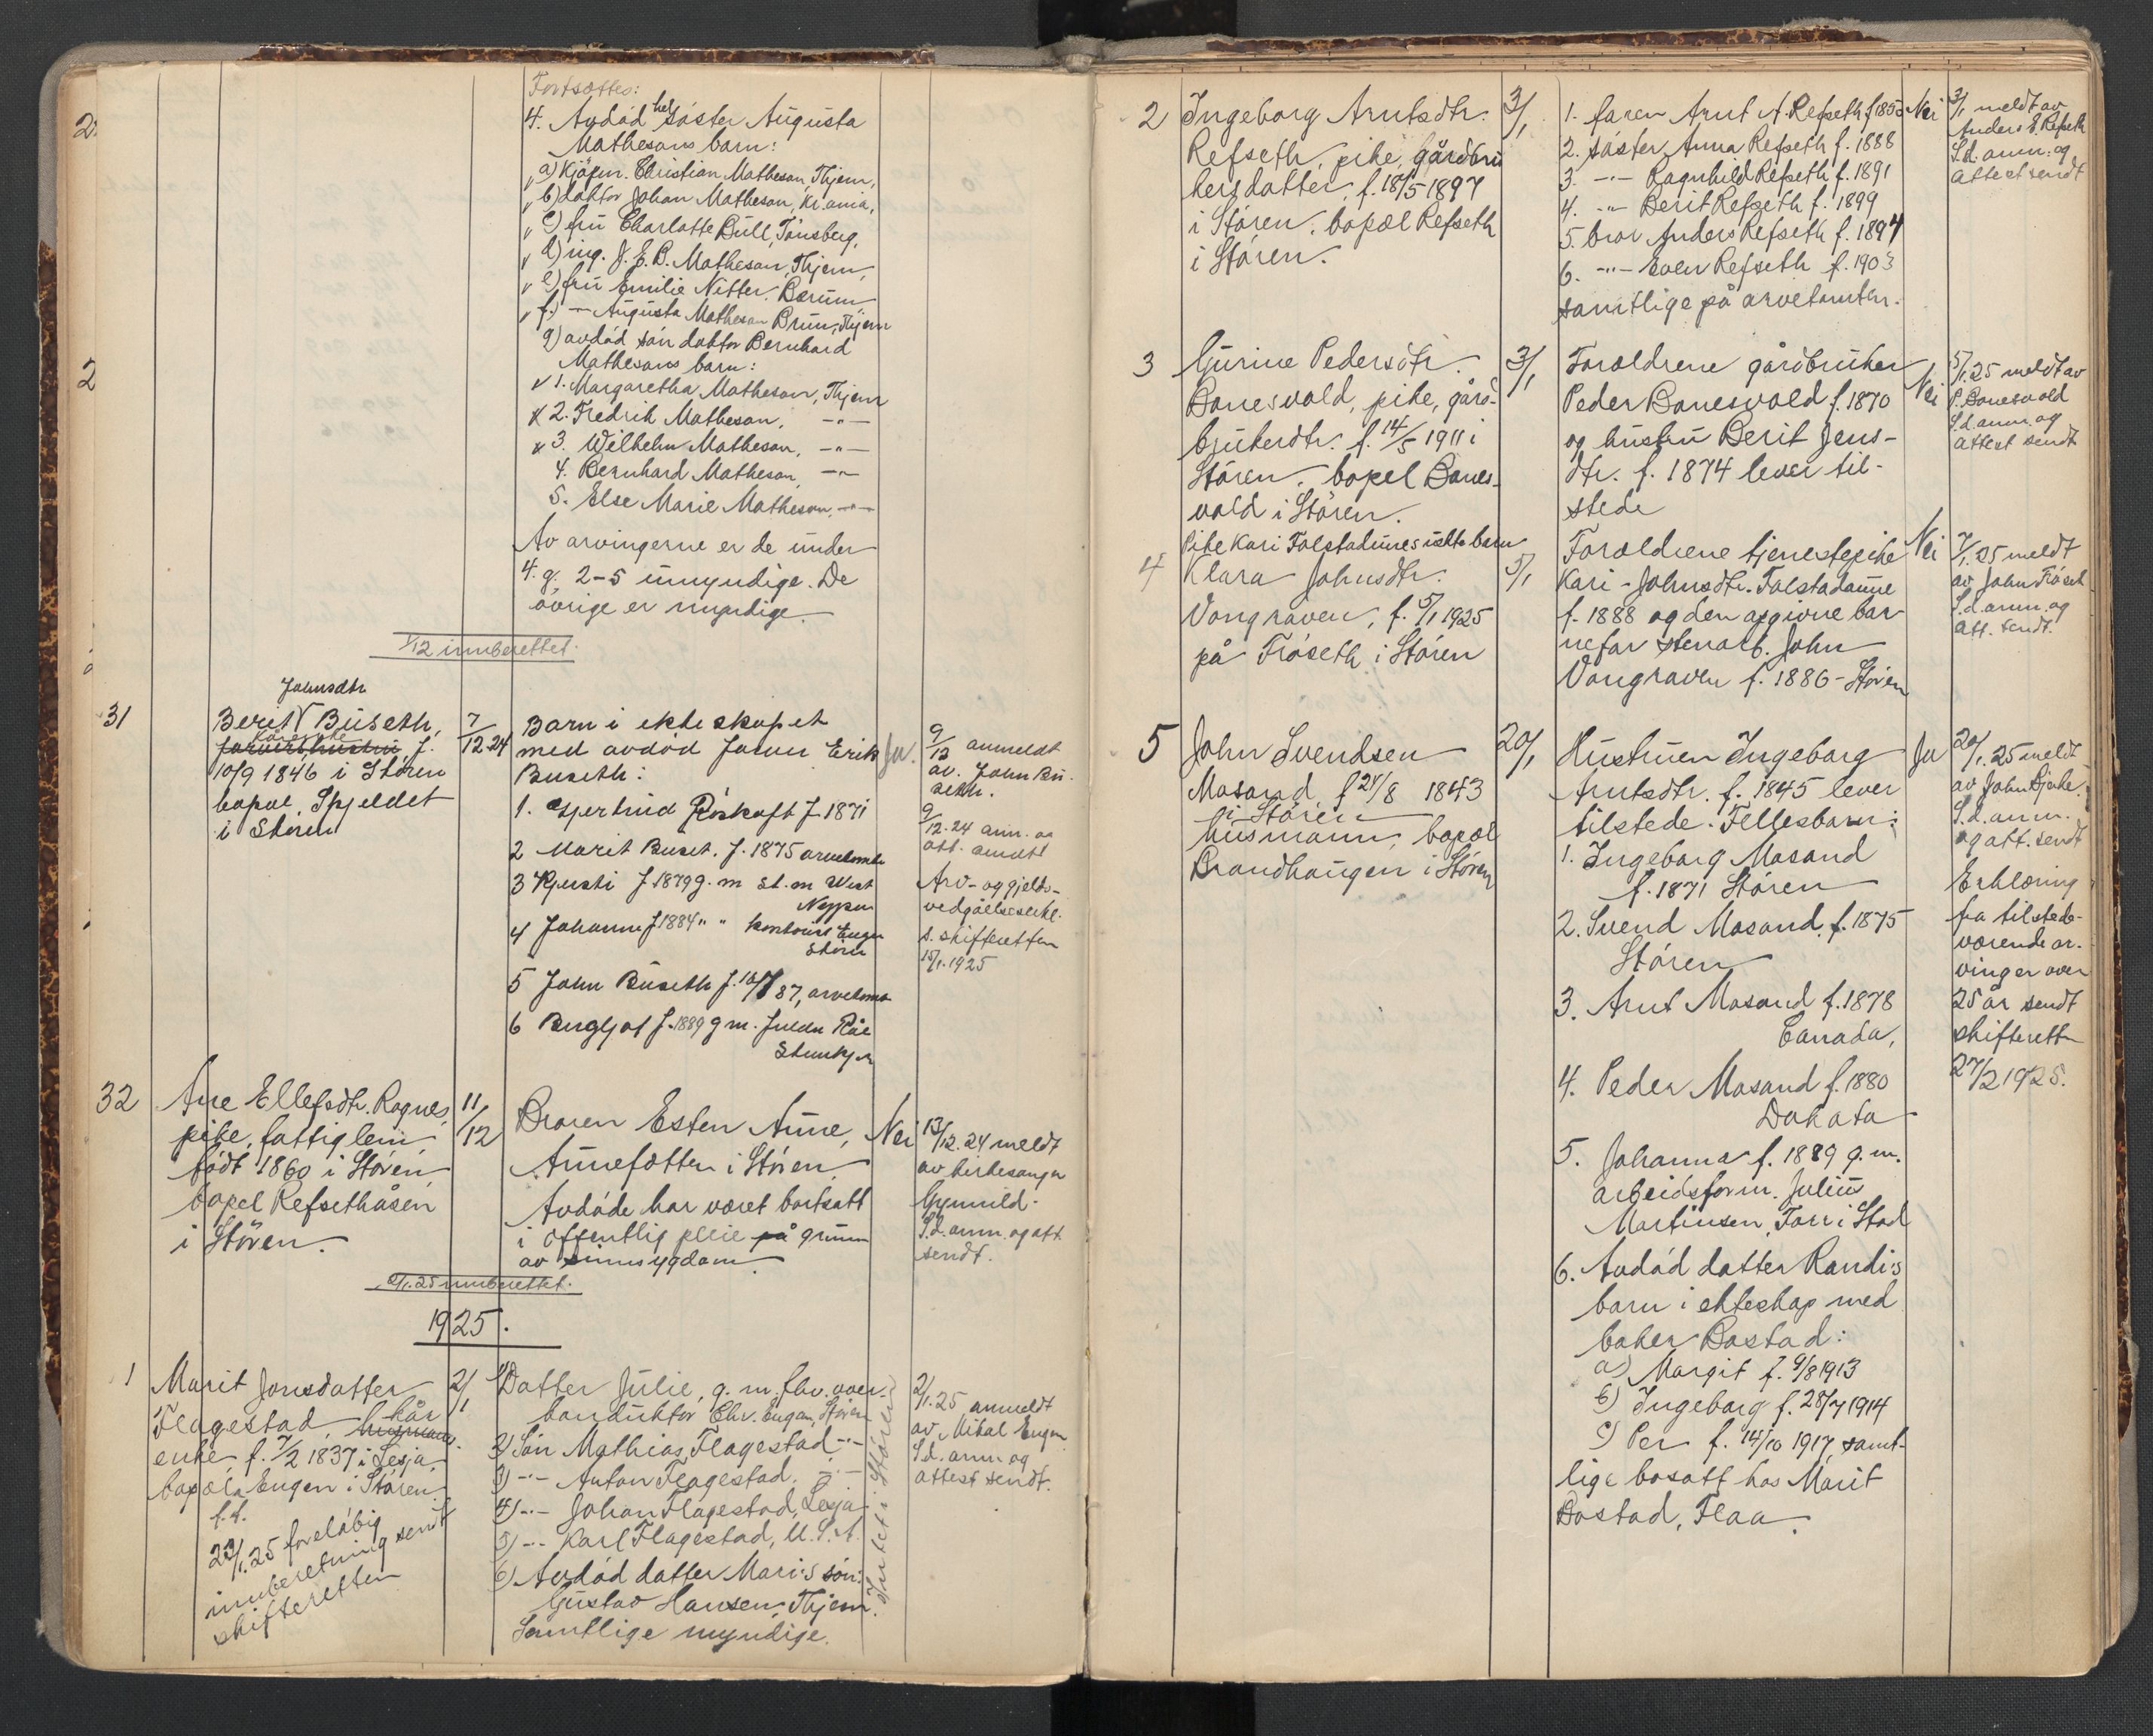 Fortsættes:
4. Avdöd hel söster Augusta
Mathesons barn:
a) kjöpm. Christian Matheson, Thjem,
b) doktor Johan Matheson, Kr.ania,
c) fru Charlotte Bull, Tönsberg,
d) ing. J. E. B. Matheson, Thjem,
e) fru Emilie Nitter, Bærum
f) — Augusta Matheson Bruun, Thjem
g) avdöd sön doktor Bernhard
Mathesons barn:
1. Margaretha Matheson, Thjem
2. Fredrik Matheson, —"—
3. Wilhelm Matheson, —"—
4. Bernhard Matheson, —"—
5. Else Marie Matheson, —"—
Av arvingerne er de under
4. g. 2-5 umyndige. De
övrige er myndige.
1/12 innberettet.
31
Johnsdtr
Berit Buseth,
kårenke f.
10/9 1846 i Stören
bopæl Spjeldet
i Stören
7/12-24
Barn i ekteskapet
med avdöd Erik
Buseth:
1. Gjertrud Röskaft f. 1871
2 Marit Buset. f. 1875 arvetomta
3 Kjersti f 1879 g. m st. m West
4 Johanna f 1884 " " Engen
Stören
5 John Buseth f. 87, arvetomta
6 Bergljot f. 1889 g m.
Stenkjer
Ja.
9/12 anmeldt
av. John Bu-
seth.
9/12-24 ann. og
att. sendt
Arv- og gjelds-
vedgåelseserkl.
s. skifteretten
15/1-1925
32
Ane Ellefsdtr. Rognes,
pike, fattiglem
född 1860 i Stören,
bopel Refsethåsen
i Stören.
11/12
Broren Esten Aune,
i Stören
Avdöde har været bortsatt
i offentlig pleie på grunn
av sinnsygdom.
Nei
13/12.24 meldt
av kirkesanger
Gynnild.
S.d. ann. og att.
sendt.
2/1.25 innberettet.
1925.
1
Marit Jonsdatter
Flagestad, kår
enke, f. 7/2 1837 i Lesja,
bopæl Engen i Stören
f. f.
23/1.25 foreløbig
innberetning sendt
skifteretten
2/1
1) Datter Julie, g. m. fhv. over-
konduktör Chr. Engen, Stören
2) Sön Mathias Flagestad —"—
3) —"— Anton Flagestad. —"—
4) —"— Johan Flagestad, Lesja
5) —"— Karl Flagestad, U.S.A.
6) Avdöd datter Maris sön:
Gustav Hansen, Thjem.
Samtlige myndige.
Intet i Stören
2/1.25 anmeldt
av Mikal Engen
S.d. ann. og
attest sendt.
2
Ingeborg Arntsdtr.
Refseth, pike, gårdbru
kersdatter, f. 18/5 1897
i Stören. bopæl Refseth
i Stören.
3/1
1. faren Arnt A. Refseth f. 185
2. söster Anna Refseth f. 1888
3. —"— Ragnhild Refseth f. 1891
4. —"— Berit Refseth f. 1899
5. bror Anders Refseth f. 1894
6. —"— Even Refseth f. 1903
samtlige på arvetomten.
Nei
3/1 meldt av
Anders E. Refseth
S.d. ann. og
attest sendt
3
Gurine Pedersdtr.
Bonesvold, pike, gård-
brukerdtr. f. 14/5 1911 i
Stören. bopel Bones-
vold i Stören.
3/1
Foreldrene gårdbruker
Peder Bonesvold f. 1870
og hustru Berit Jens-
dtr. f. 1874 lever til-
stede
Nei
5/1.25 meldt av
P. Bonesvold
S.d. ann. og
attest sendt
4
Pike Kari Folstadaunes uekte barn
Klara Johnsdtr.
Vongraven, f. 5/1 1925
på Fröseth i Stören
5/1
Foreldrene tjenestepike
Kari Johnsdtr. Folstadaune
f. 1888 og den opgivne bar-
nefar stenarb. John
Vongraven f. 1886 - Stören
Nei
7/1.25 meldt
av John Fröset
S.d. ann. og
att. sendt.
5
John Svendsen
Mosand f 28/8 1843
i Stören
husmann, bopæl
Brandhaugen i Stören
20/1
Hustruen Ingeborg
Arntsdtr. f. 1845 lever
tilstede. Fellesbarn:
1. Ingeborg Mosand
f. 1871 Stören
2. Svend Mosand f. 1875
Stören
3. Arnt Mosand f. 1878
Canada,
4. Peder Mosand f. 1880
Dakota
5. Johanna f. 1889 g. m.
arbeidsform. Julius
Martinsen, i Stod
6. Avdöd datter Randis
barn i ekteskap med
baker Bostad:
a) Margit f. 9/8 1913
b) Ingeborg f. 28/7 1914
c) Per f. 14/10 1917, samt-
lige bosatt hos Marit
Bostad, Flaa.
Ja
20/1.25 meldt
av John
S.d. ann.
og att. sendt
Erklæring
fra tilstede-
værende ar-
vinger over
25 år sendt
skifteretten
27/2 1925.